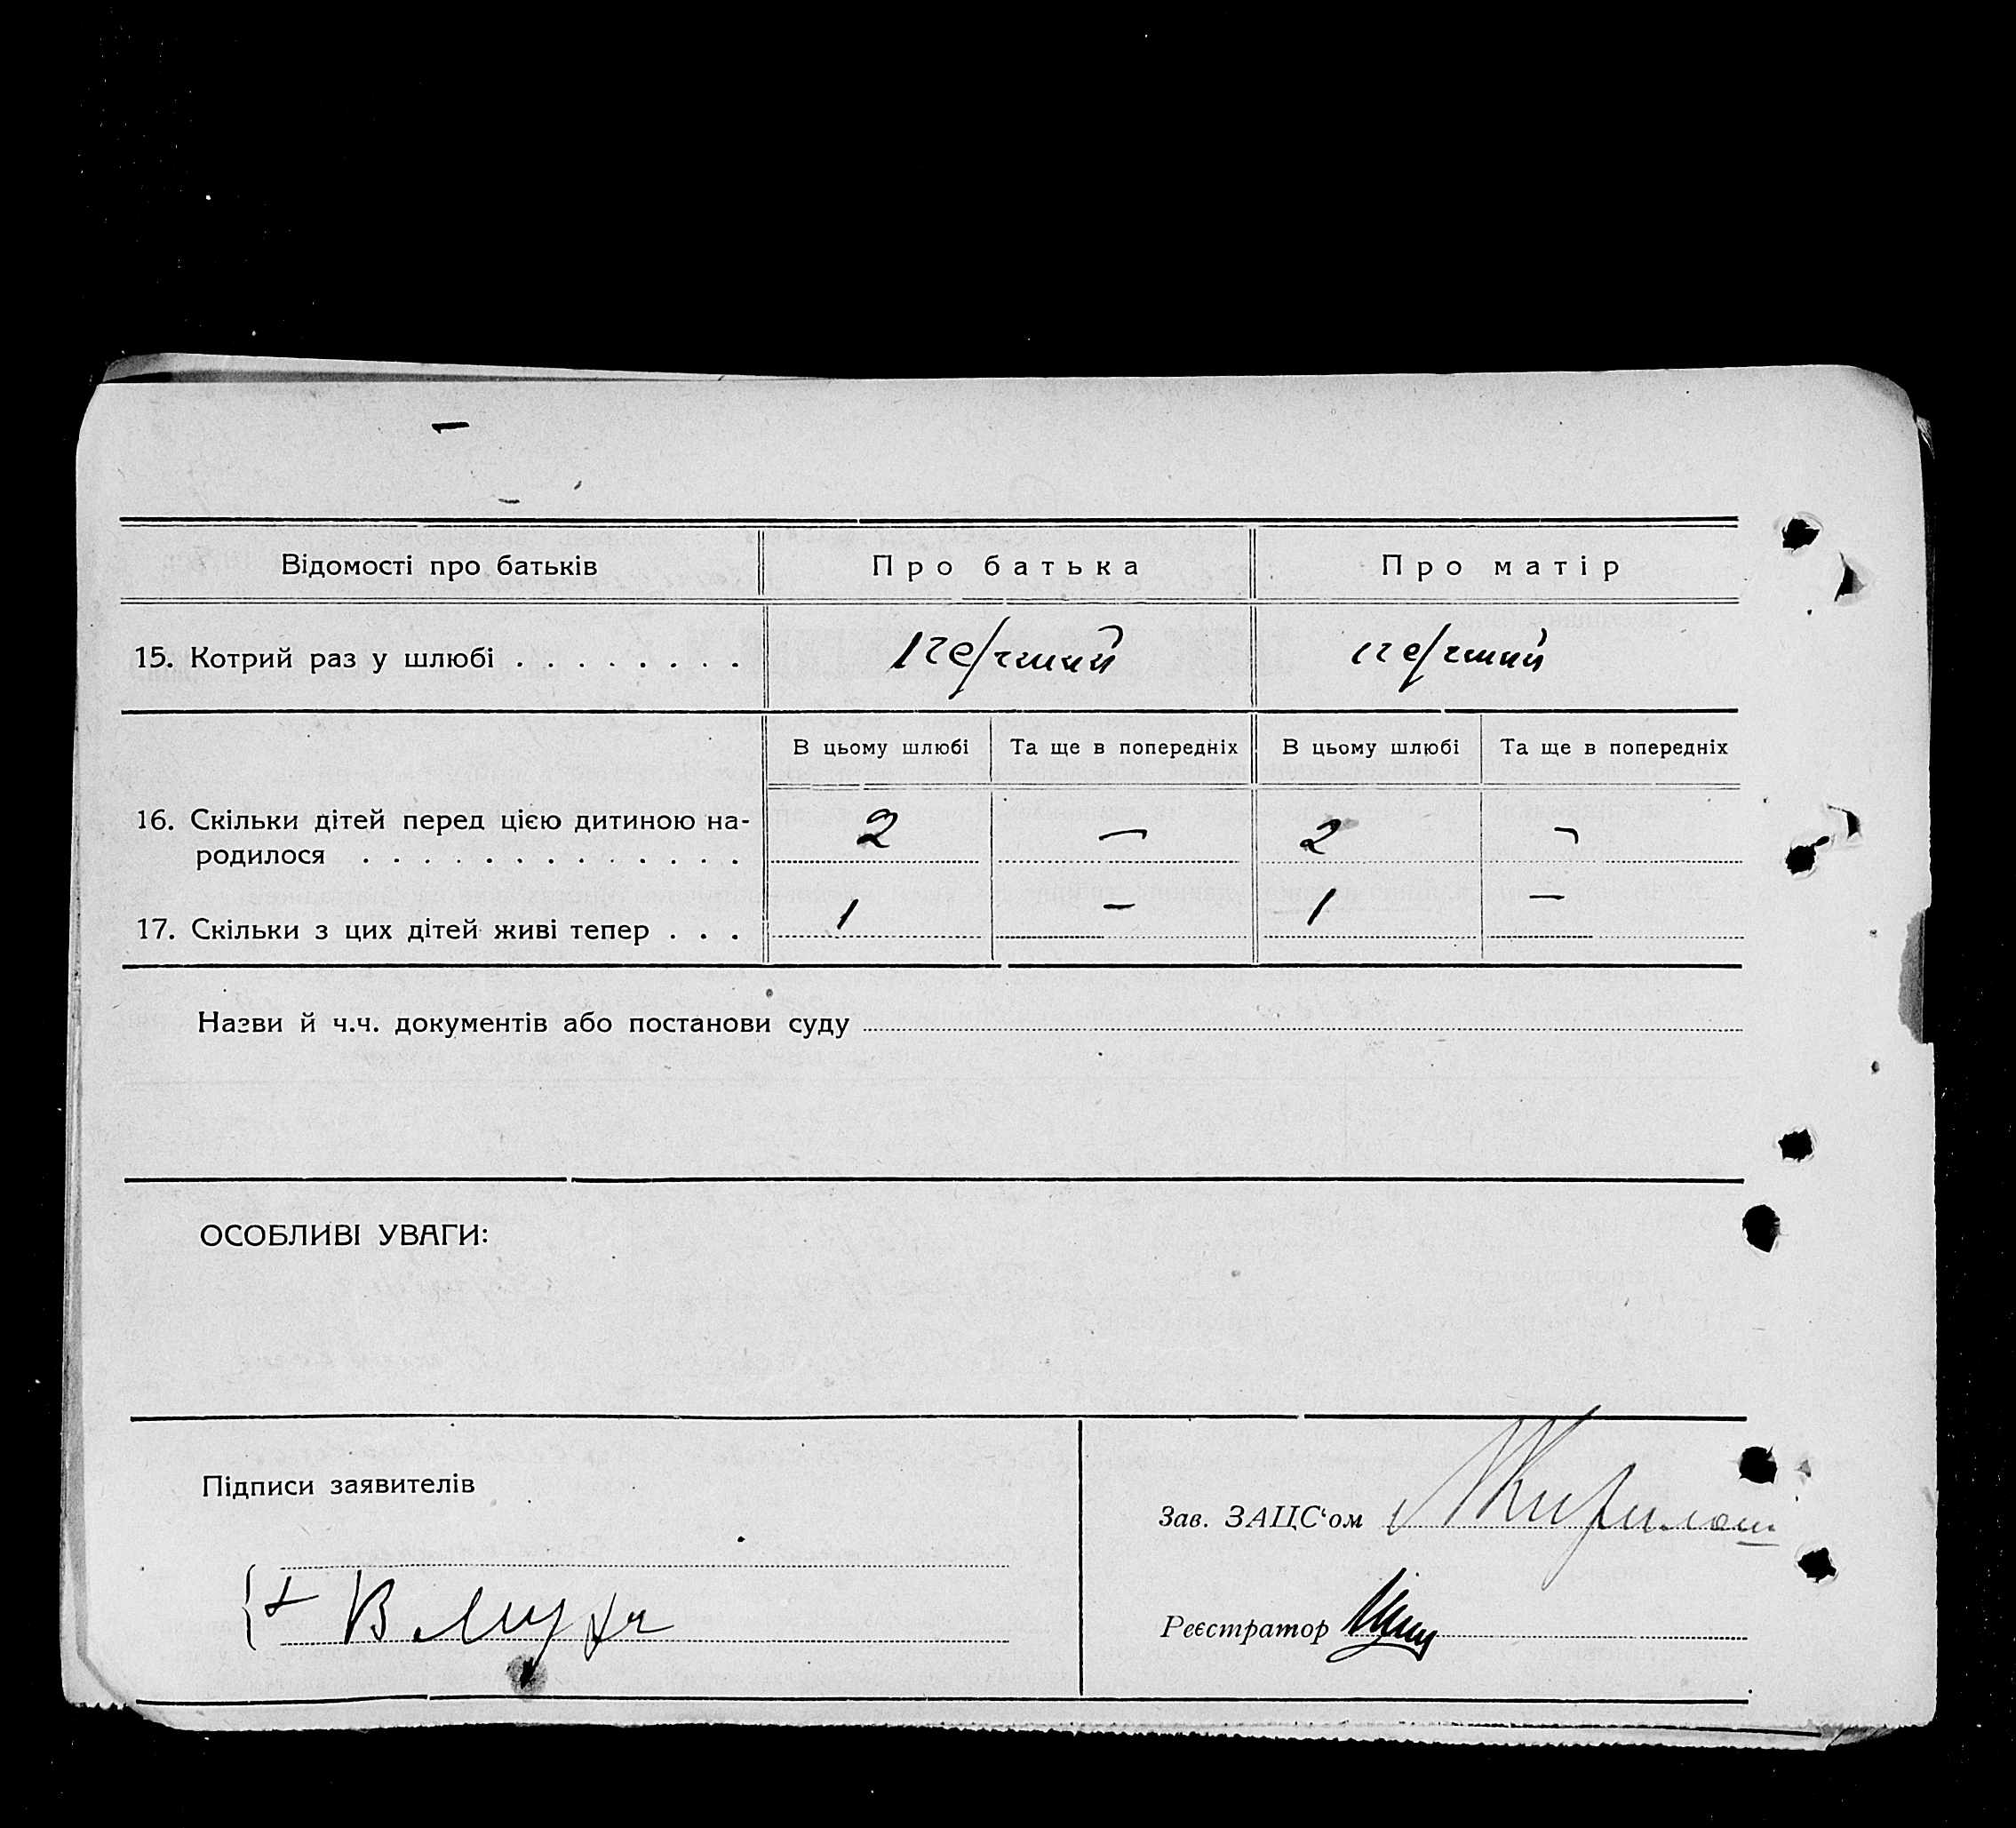 Відомості про батьків Про батька Про матір
15. Котрий раз у шлюбі . . . . . . . . перший перший
В цьому шлюбі Та ще в попередніх В цьому шлюбі Та ще в попередніх
16. Скільки дітей перед цією дитиною на-
родилося . . . . . . . . . . . . . 2 — 2 —
17. Скільки з цих дітей живі тепер . . . 1 — 1 —
Назви й ч.ч. документів або постанови суду
ОСОБЛИВІ УВАГИ:
Підписи заявителів
Зав. ЗАЦС‘ом
Реєстратор